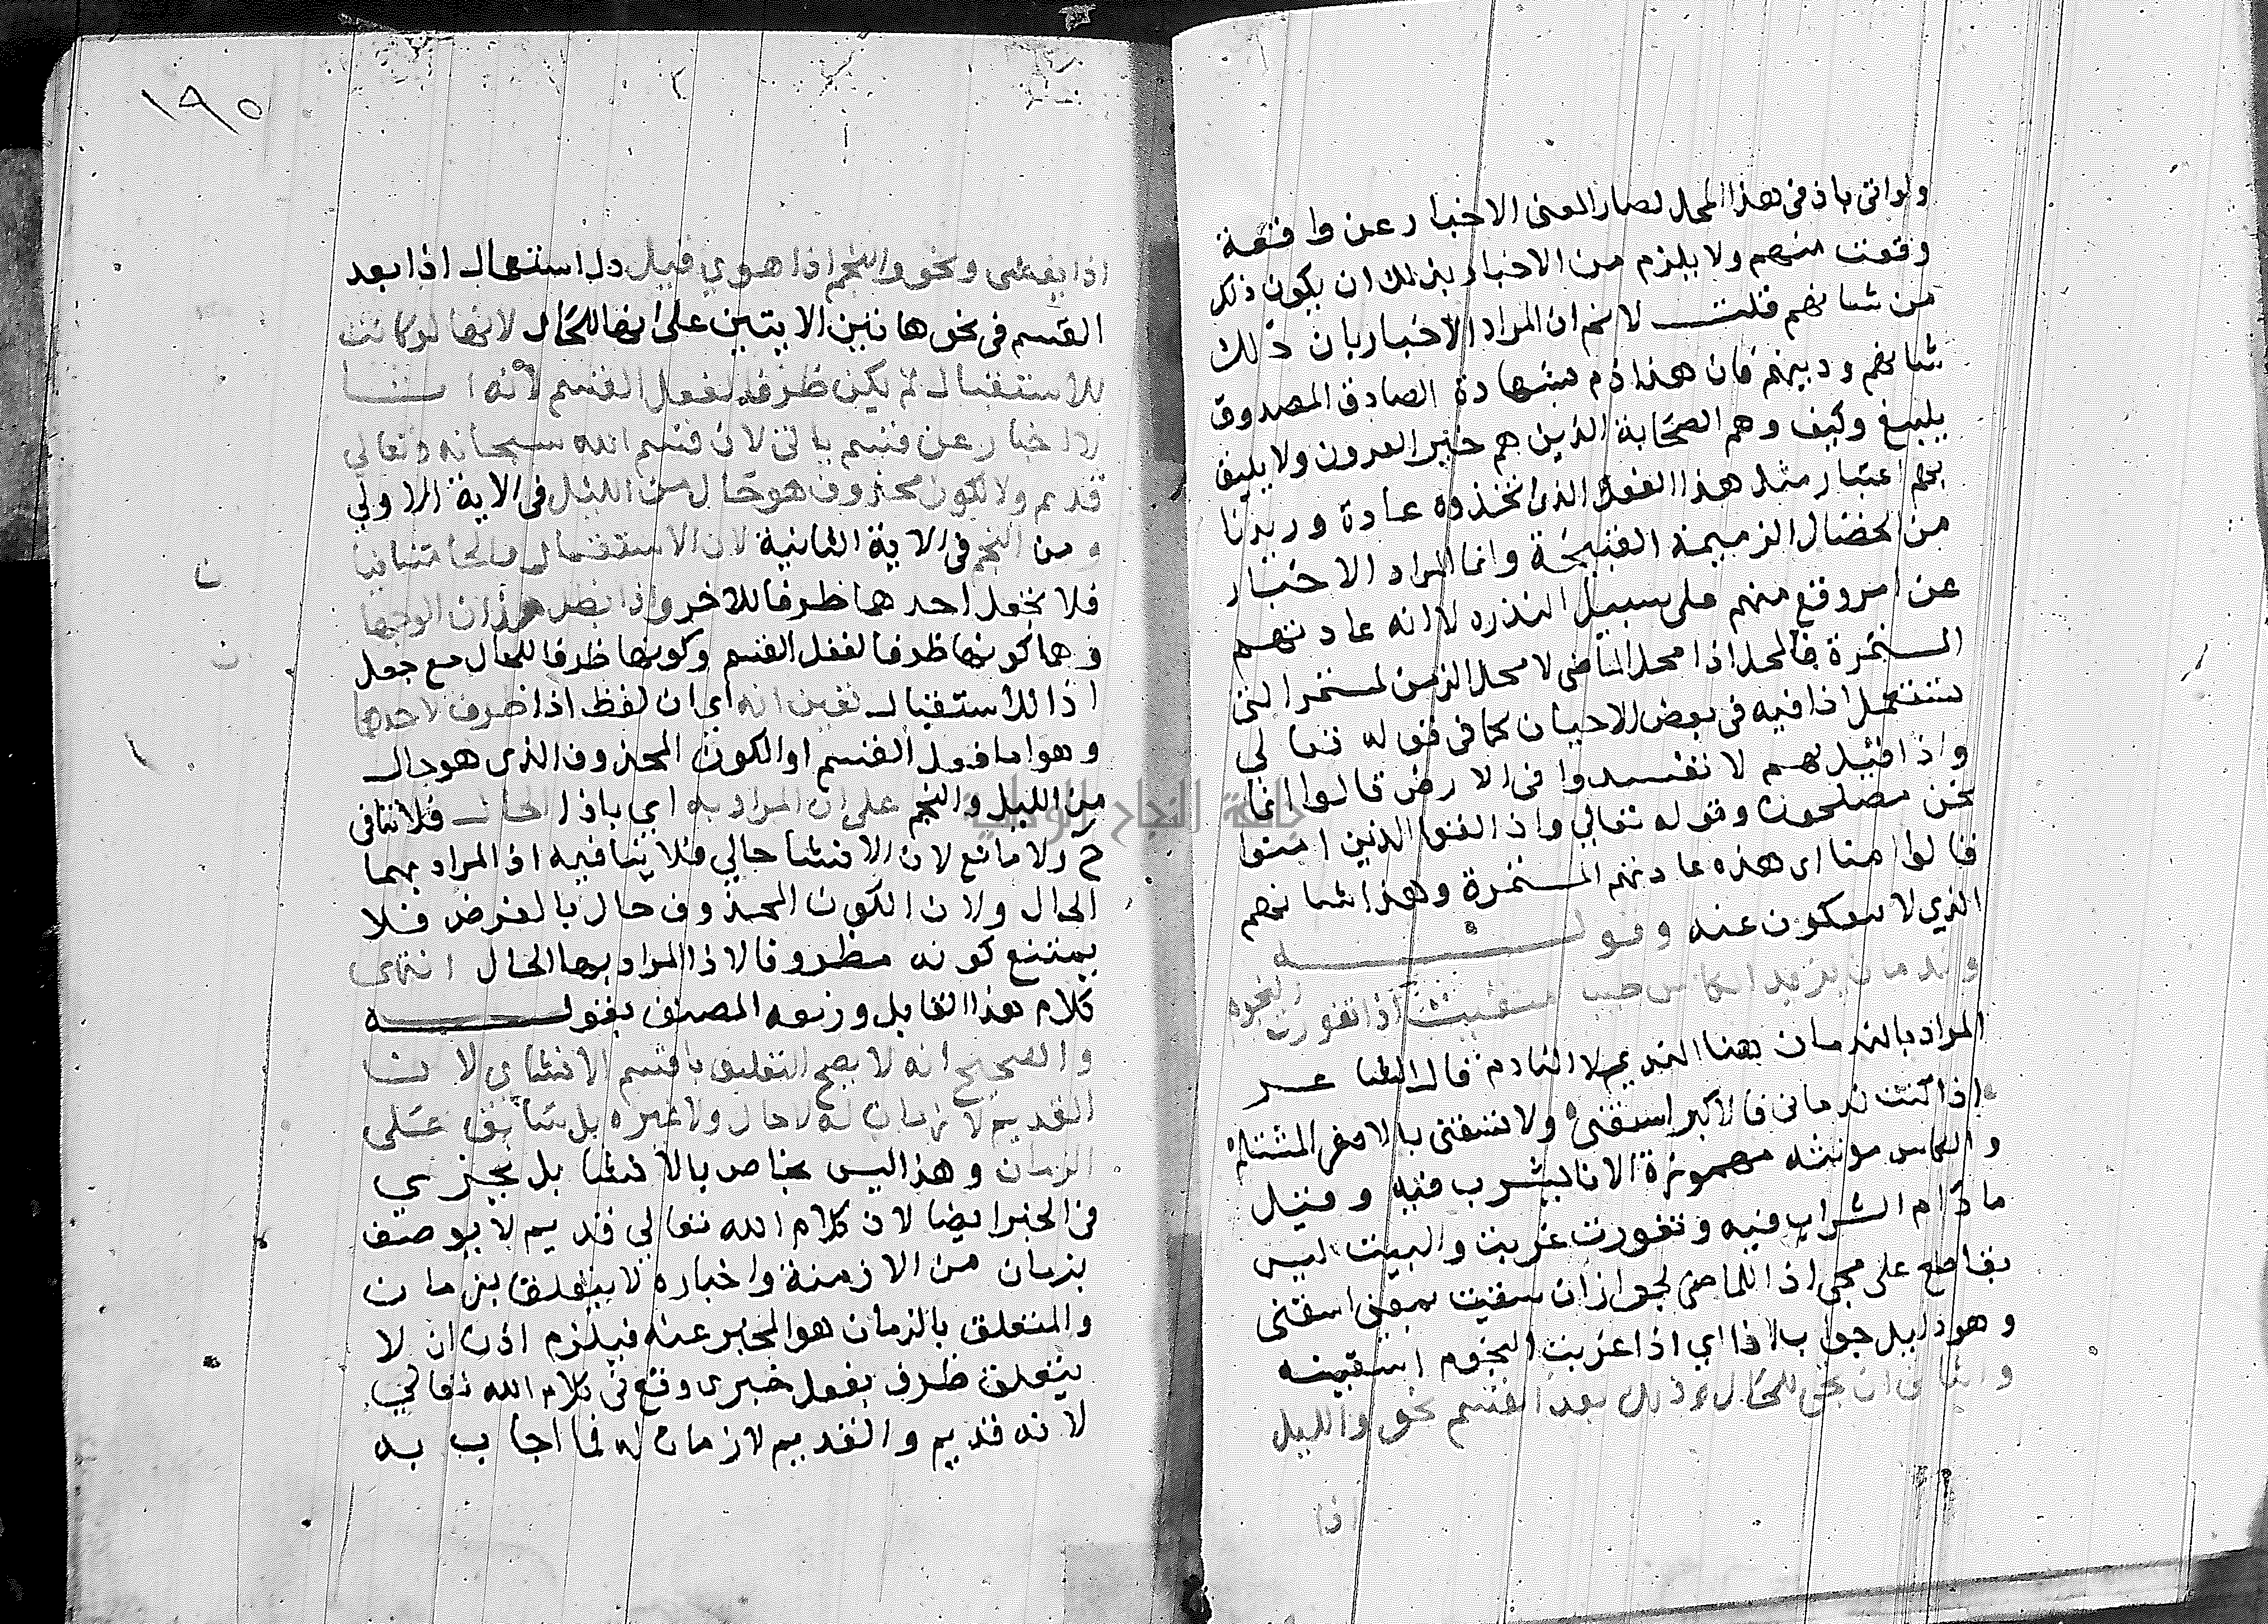 ولو اتى باذ فى هذا المحل لصار المعنى الاخبار عن واقعة
وقعت منهم ولا يلزم من الاخبار بذلك ان يكون ذلك
من شانهم قلت لا نم ان المراد الاخبار بان ذلك
شانهم ودينهم فان هذا ذم بشهادة الصادق المصدوق
يليغ وكيف وهم الصحابة الذين هم خير القرون ولا يليق
بهم اعتبار مثل هذا الفعل الذى اتخذوه عادة وديدنا
من الخصال الذميمة القبيحة وانما المراد الاخبار
عن امر وقع منهم على سبيل الندره لا انه عادتهم
المستمرة فالمحل اذا محل الماضى لا محل الزمن المستمر التى
تستعمل اذا فيه فى بعض الاحيان كما فى قوله تعالي
واذا قيل لهم لا تفسدوا فى الارض قالوا انما
نحن مصلحون وقوله تعالي واذا لقوا الذين امنوا
قالوا امنا اى هذه عادتهم المستمرة وهذا شانهم
الذي لا ينفكون عنه وقوله
وندمان يزيد الكاس طيبا سقيت اذا تغورت النجوم
المراد بالندمان هنا النديم لا النادم قال الشاعر
اذا كنت ندمانى فالاكبر اسقنى ولا تسقنى بالاصغر المتثلم
والكاس مونثه مهموزة الانا ليشرب فيه وقيل
ما دام الشراب فيه وتغورت غربت والبيت ليس
بقاطع على مجى اذا للماضى لجواز ان سقيت بمعنى اسقنى
وهو دليل جواب اذا اي اذا غربت النجوم اسقيته
والثانى ان تجى للحال وذلك بعد القسم نحو والليل
اذا
١٩٥
اذا يغشى ونحو والنجم اذا هوي قيل دل استعمال اذا بعد
القسم فى نحو هاتين الايتين على انها للحال لانها لو كانت
للاستقبال لم يكن ظرفا لفعل القسم لانه انشا
لا اخبار عن قسم ياتى لان قسم الله سبحانه وتعالي
قديم ولا لكون محذوف هو حال من الليل فى الاية الاولي
ومن النجم فى الاية الثانية لان الاستقبال والحال متنافيا
فلا يجعل احدهما ظرفا للاخر واذا بطل هذان الوجها
وهما كونها ظرفا لفعل القسم وكونها ظرفا للحال مع جعل
اذا للاستقبال تعين انه اي ان لفظ اذا ظرف لاحدها
وهو اما فعل القسم او الكون المحذوف الذى هو حال
من الليل والنجم على ان المراد به اي باذا الحال فلا تنافى
ح ولا مانع لان الانشا حالي فلا ينافيه اذ المراد بهما
الحال ولان الكون المحذوف حال بالفرض فلا
يمتنع كونه مظروفا لاذا المراد بها الحال انتهى
كلام هذا القايل وزيفه المصنف بقوله
والصحيح انه لا يصح التعليق باقسم الانشاي لان
القديم لا زمان له لا حال ولا غيره بل سابق على
الزمان وهذا ليس بخاص بالانشا بل يجري
فى الخبر ايضا لان كلام الله تعالي قديم لا يوصف
بزمان من الازمنة واخباره لا يتعلق بزمان
والمتعلق بالزمان هو المخبر عنه فيلزم اذن ان لا
يتعلق ظرف بفعل خبرى وقع فى كلام الله تعالي
لانه قديم والقديم لا زمان له فما اجاب به
جامعة النجاح الوطنية